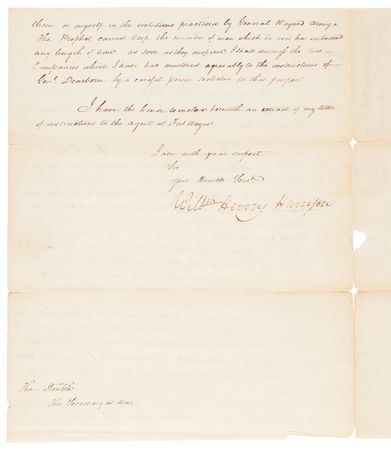 them or myself in the evolutions practised by General Wayne's Army
The Prophet cannot keep the number of men which he now has embodied
any length of time as soon as they disperse I shall dismiss the two
Companies which I have had mustered agreeably to the instructions of
Genl. Dearborn by a careful person selected for that purpose
I have the honor to enclose herewith an extract of my letter
of instructions to the agent at Fort Wayne
I am with great respect
Sir
your Humble Servt
Willm Henry Harrison
The Honble
The Secretary at War